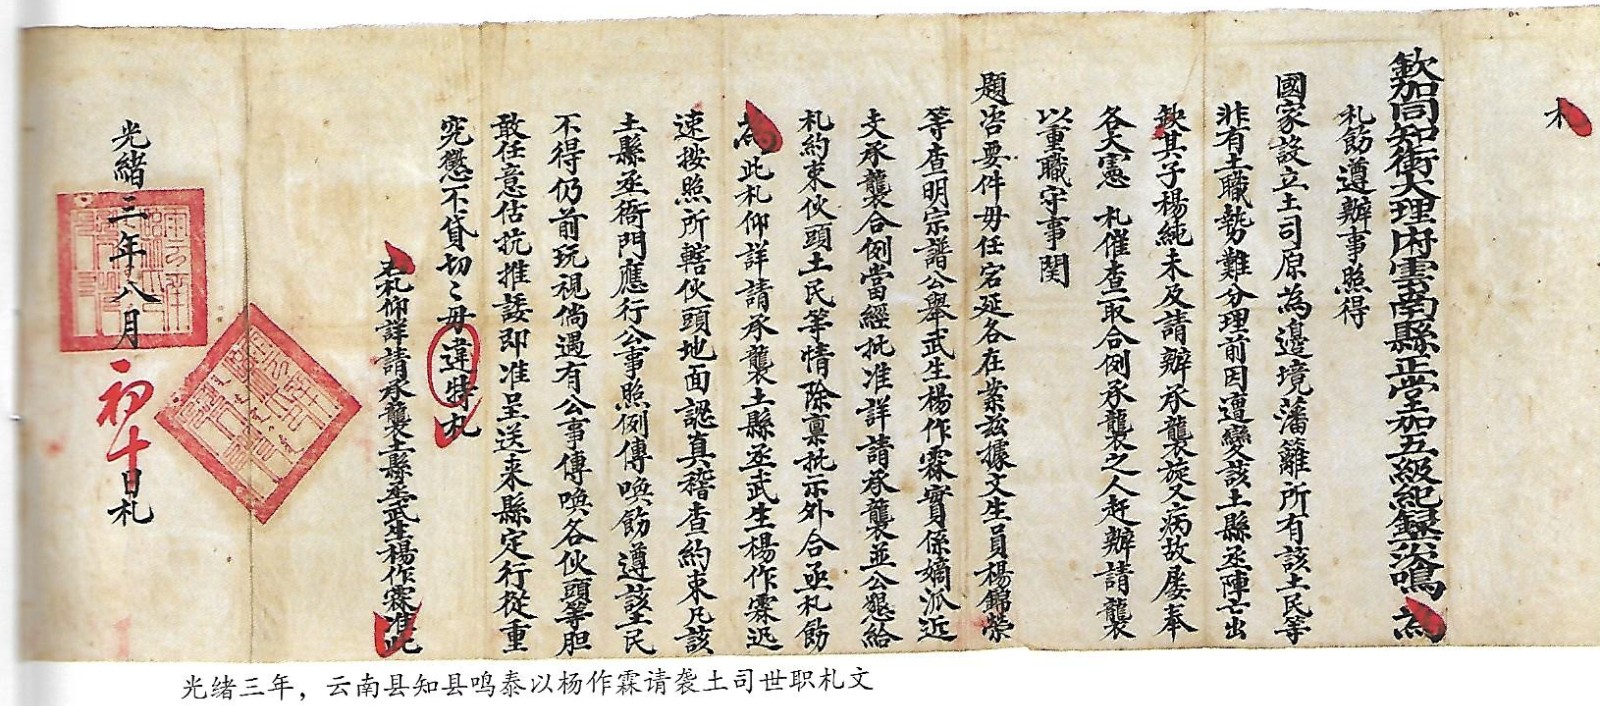 札
欽加同知銜大理府雲南縣正堂加五級紀錄次鳴 為
札飭遵辦事照得
國家設立土司原為邊境藩籬所有該土民等
非有土職勢難分理前因遭變該土縣丞陣亡出
缺其子楊純未及請辦承襲旋又病故屡奉
各大憲 札催查取合例承襲之人赶辦請襲
以重職守事関
題咨要件毋任宕延各在案兹據文生員楊錦榮
等查明宗譜公舉武生楊作霖實係嫡派近
支承襲合例當經批准詳請承襲並公懇給
札約束伙頭土民等情除禀批示外合亟札飭
為此札仰詳請承襲土縣丞武生楊作霖迅
速按照所轄伙頭地面認真稽查約束凡該
土縣丞衙門應行公事照例傳喚飭遵該土民
不得仍前玩視倘遇有公事傳喚各伙頭等胆
敢任意估抗推諉即准呈送来縣定行從重
究懲不貸切〻毋違特札
右札仰詳請承襲土縣丞武生楊作霖准此
光緒三年八月初十日札
光绪三年，云南县知县鸣泰以杨作霖请袭土司世职札文